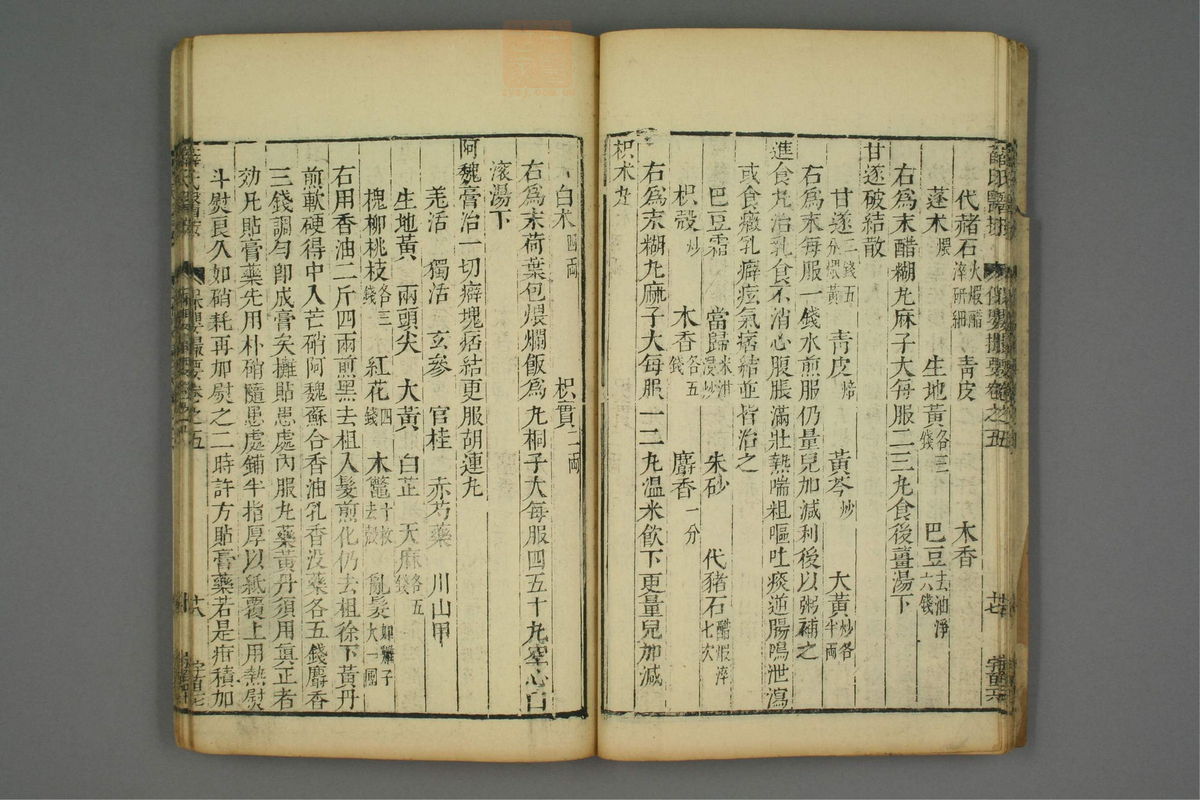 代赭石火煆醋淬研細 青皮 木香
蓬朮煨 生地黃各三錢 巴豆去油淨六錢
右為末醋糊丸麻子大每服二三丸食後薑湯下
甘遂破結散
甘遂二錢五分煨黃 青皮焙 黃芩炒 大黃炒各半兩
右為末每服一錢水煎服仍量兒加減利後以粥補之
進食丸治乳食不消心腹脹滿壯熱喘粗嘔吐痰逆腸鳴泄瀉
或食癥乳癖痃氣痞結並皆治之
巴豆霜 當歸米泔浸炒 朱砂 代赭石醋煆淬七次
枳殼炒 木香各五錢 麝香一分
右為末糊丸麻子大每服一二丸溫米飲下更量兒加減
枳朮丸
白朮四兩 枳實二兩
右為末荷葉包煨爛飯為丸桐子大每服四五十丸空心白
滾湯下
阿魏膏治一切癖塊痞結更服胡連丸
羌活 獨活 玄參 官桂 赤芍藥 川山甲
生地黃 兩頭尖 大黃 白芷 天麻各五錢
槐柳桃枝各三錢 紅花四錢 木鼈十枚去殼 亂髮如雞子大一團
右用香油二斤四兩煎黑去柤入髮煎化仍去柤徐下黃丹
煎軟硬得中入芒硝阿魏蘇合香油乳香沒藥各五錢麝香
三錢調勻即成膏矣攤貼患處內服丸藥黃丹須用真正者
効凡貼膏藥先用朴硝隨患處鋪半指厚以紙覆上用熱熨
斗熨良久如硝耗再加熨之二時許方貼膏藥若是疳積加